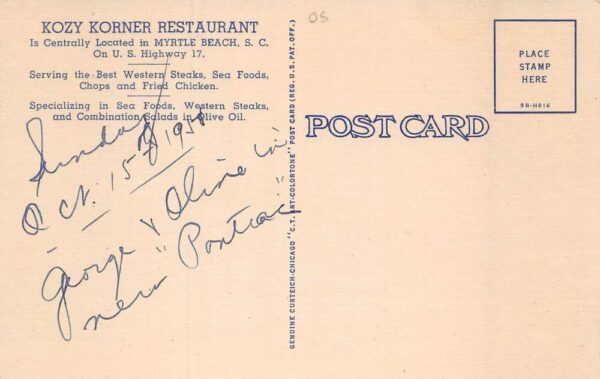 KOZY KORNER RESTAURANT
Is Centrally Located in MYRTLE BEACH, S. C.
On U. S. Highway 17.
Serving the Best Western Steaks, Sea Foods,
Chops and Fried Chicken.
Specializing in Sea Foods, Western Steaks,
and Combination Salads in Olive Oil.
Sunday
Oct. 15th 1950
George & Olive in
new "Pontiac"
GENUINE CURTEICH-CHICAGO "C.T. ART-COLORTONE" POST CARD (REG. U.S. PAT. OFF.)
OS
POST CARD
PLACE
STAMP
HERE
9B-H816